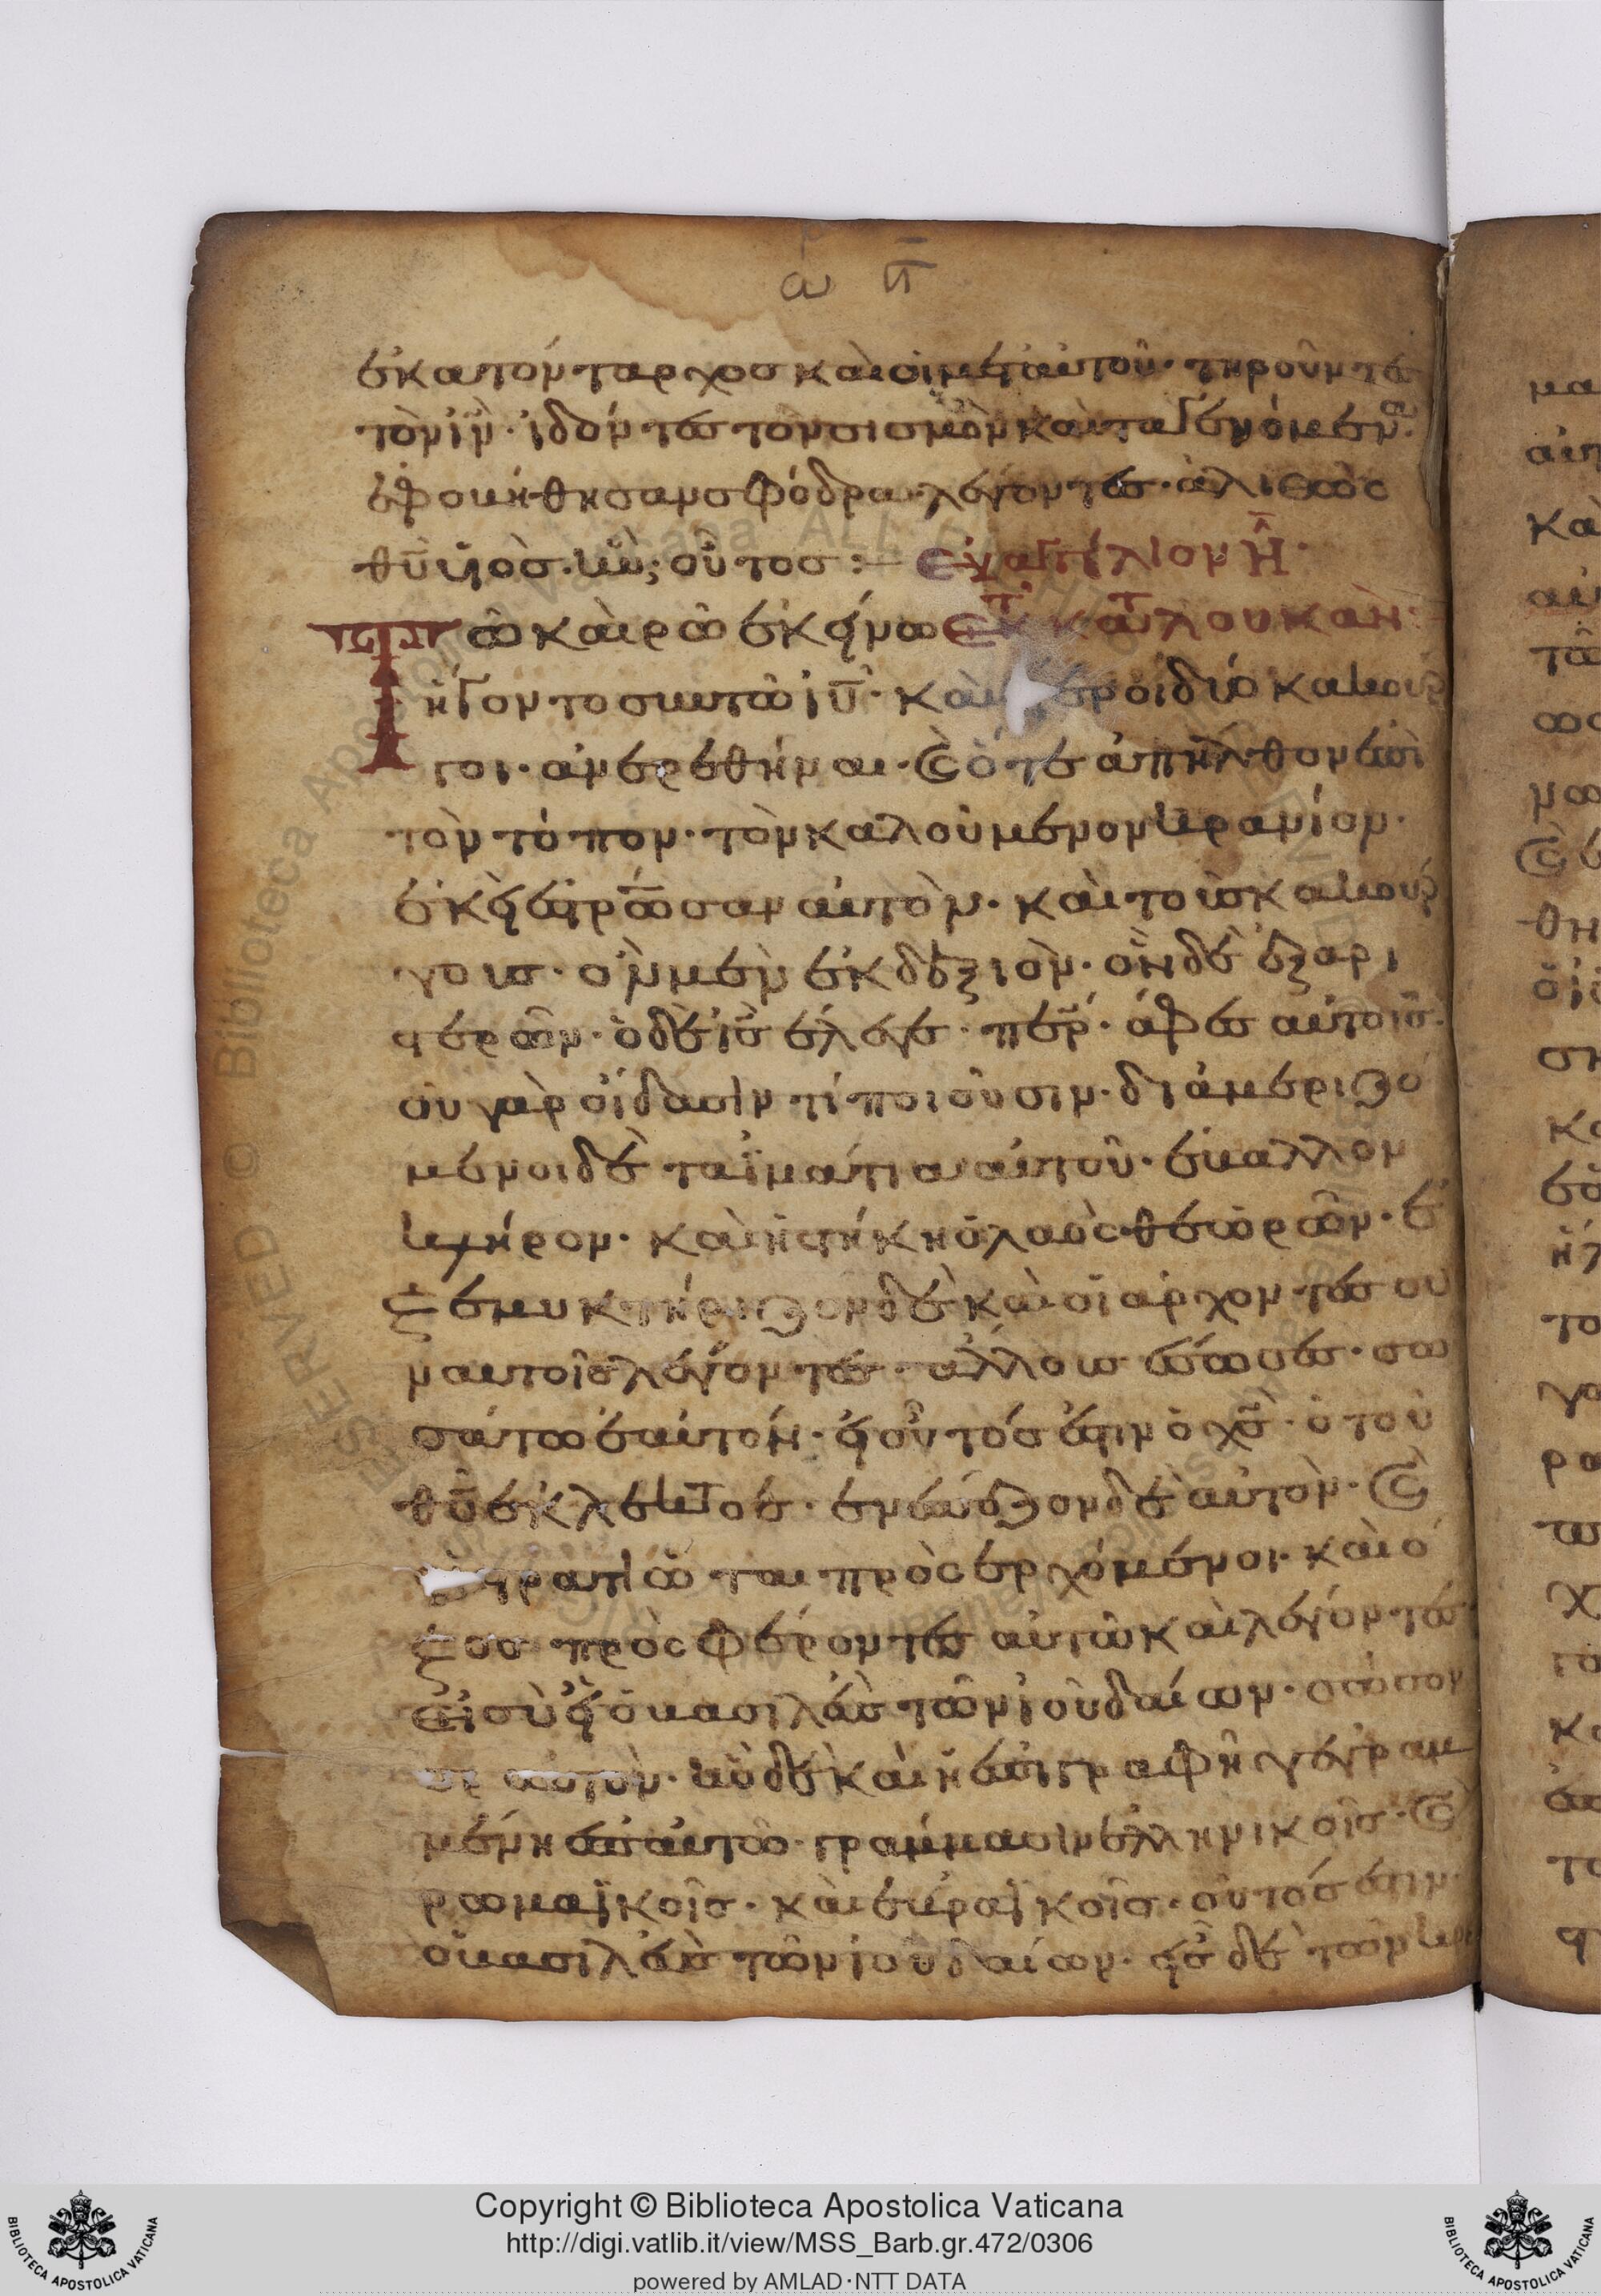 ω π
ἑκατόνταρχος καὶ οἱ μετ αὐτοῦ· τηροῦντες
τὸν ἰν· ἰδόντες τὸν σισμὸν καὶ τα γενόμενα·
ἐφοβήθησαν σφόδρα λέγοντες· ἀλιθῶς
θῡ υἱὸς ἦν οὗτος :— εὐαγγέλιον Η·
Τῶ καιρῶ ἐκείνω ἐκ τ κατ λουκὰν·
ἤγοντο σὺν τῶ ἰυ· καὶ ἕτεροι δύο κακουρ
γοι· ἀνερεθήναι· καὶ ὅτε ἀπῆλθον ἐπὶ
τὸν τόπον· τὸν καλούμενον κρανίον·
ἐκεῖ ἐστρωσαν αὐτὸν· καὶ τοὺς κακούρ
γους· ὃν μὲν ἐκ δεξιὸν· ὃν δὲ ἐξ αρι
στερῶν· ὁ δὲ ις ἔλεγε· περ· άφες αὐτοῖς·
οὐ γὰρ οἴδασιν τί ποιοῦσιν· διάμεριζό
μενοι δὲ τα ϊμάτια αὐτοῦ· ἔβαλλον
κλήρον· καὶ ἱστήκη ὁ λαὸς θεωρῶν· ἐ
ξεμυκτήριζον δὲ καὶ οἱ αρχοντες συ
ν αυτοῖς λέγοντες· αλλους ἔσωσεν· σω
σάτω ἑαὐτόν· εἰ οὗτός ἐστιν ὁ χς· ὁ τοῦ
θῦ ἐκλεκτος· ενέπεζον δὲ αὐτὸν· καὶ
στρατιῶται πρὸς ερχόμενοι· καὶ ὀ
ξος πρὸς φέροντες αὐτῶ καὶ λέγοντες·
Εἰ σὺ εἶ ὁ βασιλεὺς τῶν ἰουδαίων· σῶσον
σε αυτὸν· ἦν δὲ καὶ ἡ ἐπιγραφὴ γεγραμ
μένη ἐπ αὐτῶ· γραμμασιν ἑλληνικοῖς· καὶ
ρωμαϊκοῖς· καὶ ἑβραϊκοῖς· οὗτός ἐστιν·
ὁ βασιλεὺς τῶν ἰουδαίων· εἷς δὲ τῶν κρε
Copyright © Biblioteca Apostolica Vaticana
http://digi.vatlib.it/view/MSS_Barb.gr.472/0306
powered by AMLAD·NTT DATA